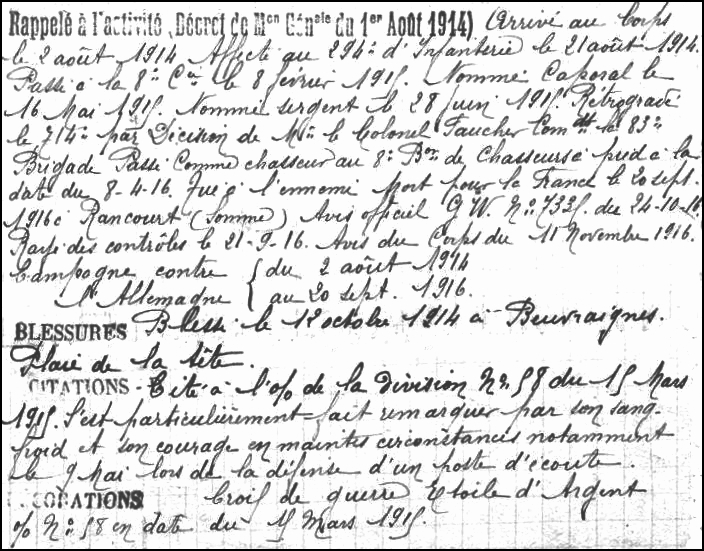 Rappelé à l'activité (Décret de Mon Génale du 1er Août 1914) Arrivé au Corps
le 2 août 1914 Affecté au 294e d'Infanterie le 21 août 1914.
Passé à la 8e Cie le 8 février 1915. Nommé Caporal le
16 Mai 1915. Nommé sergent le 28 juin 1915. Rétrogradé
le par Décision de Mr le Colonel Faucher Comdt la 83e
Brigade Passé comme chasseur au 8e Bon de Chasseurs à pied à la
date du 8-4-16. Tué à l'ennemi Mort pour la France le 20 sept.
1916 à Rancourt (Somme) Avis officiel G.W. No 7335. du 24-10-16
Rayé des contrôles le 21-9-16. Avis du Corps du 11 Novembre 1916.
Campagne contre { du 2 août 1914
l'Allemagne { au 20 sept. 1916.
BLESSURES Blessé le 1er octobre 1914 à Beuvraignes.
Plaie de la tête.
CITATIONS - Cité à l'o/ de la Division No 58 du 15 Mars
1915. S'est particulièrement fait remarquer par son sang-
froid et son courage en maintes circonstances notamment
le 9 Mai lors de la défense d'un poste d'écoute.
CORATIONS Croix de guerre Etoile d'Argent
o/ No 58 en date du 15 Mars 1915.